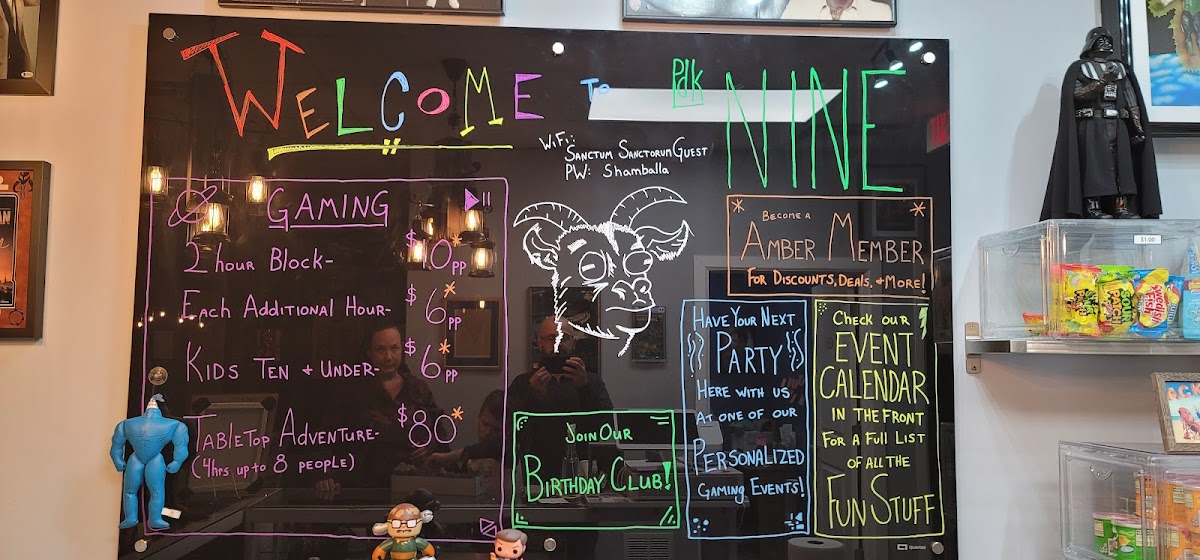 WELCOME TO Pdk NINE
WiFi:
SANCTUM SANCTORUM GUEST
PW: Shamballa
GAMING
2 hour Block- $10* PP
Each Additional Hour- $6* PP
Kids Ten + Under- $6* PP
TableTop Adventure- $80*
(4hrs up to 8 people)
Become a
Amber Member
For Discounts, Deals, + More!
Have Your Next
Party
Here with us
At one of our
Personalized
Gaming Events!
Check our
Event
Calendar
in the front
for a full list
of all the
Fun Stuff
Join Our
Birthday Club!
$1.00
SOUR
PATCH